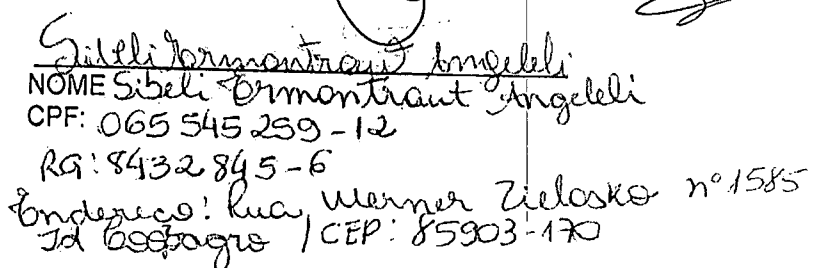 Sibeli Ermontraut Angeleli
NOME Sibeli Ermontraut Angeleli
CPF: 065 545 259-12
RG: 8432845-6
Endereço: Rua, Werner Zielasko nº 1585
Jd Coopagro / CEP: 85903-170